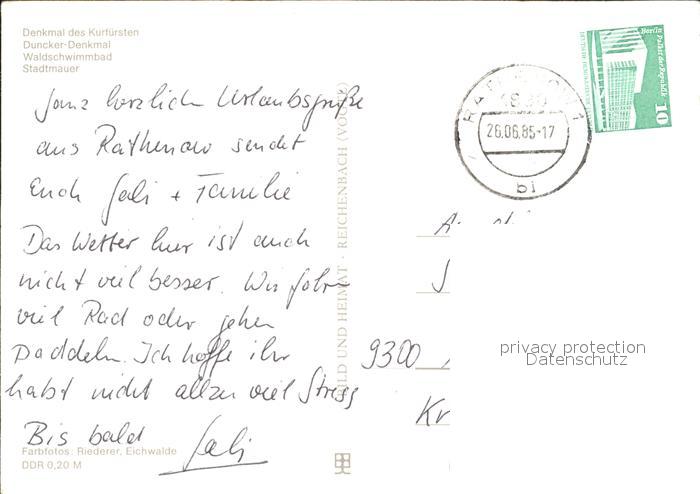 Denkmal des Kurfürsten
Duncker-Denkmal
Waldschwimmbad
Stadtmauer
Ganz herzliche Urlaubsgrüße
aus Rathenow sendet
Euch Gabi + Familie
Das Wetter hier ist auch
nicht viel besser. Wir fahren
viel Rad oder gehen
Paddeln. Ich hoffe ihr
habt nicht allzu viel Stress
Bis bald Gabi
Farbfotos: Riederer, Eichwalde
DDR 0,20 M
BILD UND HEIMAT · REICHENBACH (VOGTL)
RATHENOW 1
1830
26.06.85-17
bi
Berlin Palast der Republik
10
9300
Kr
privacy protection
Datenschutz